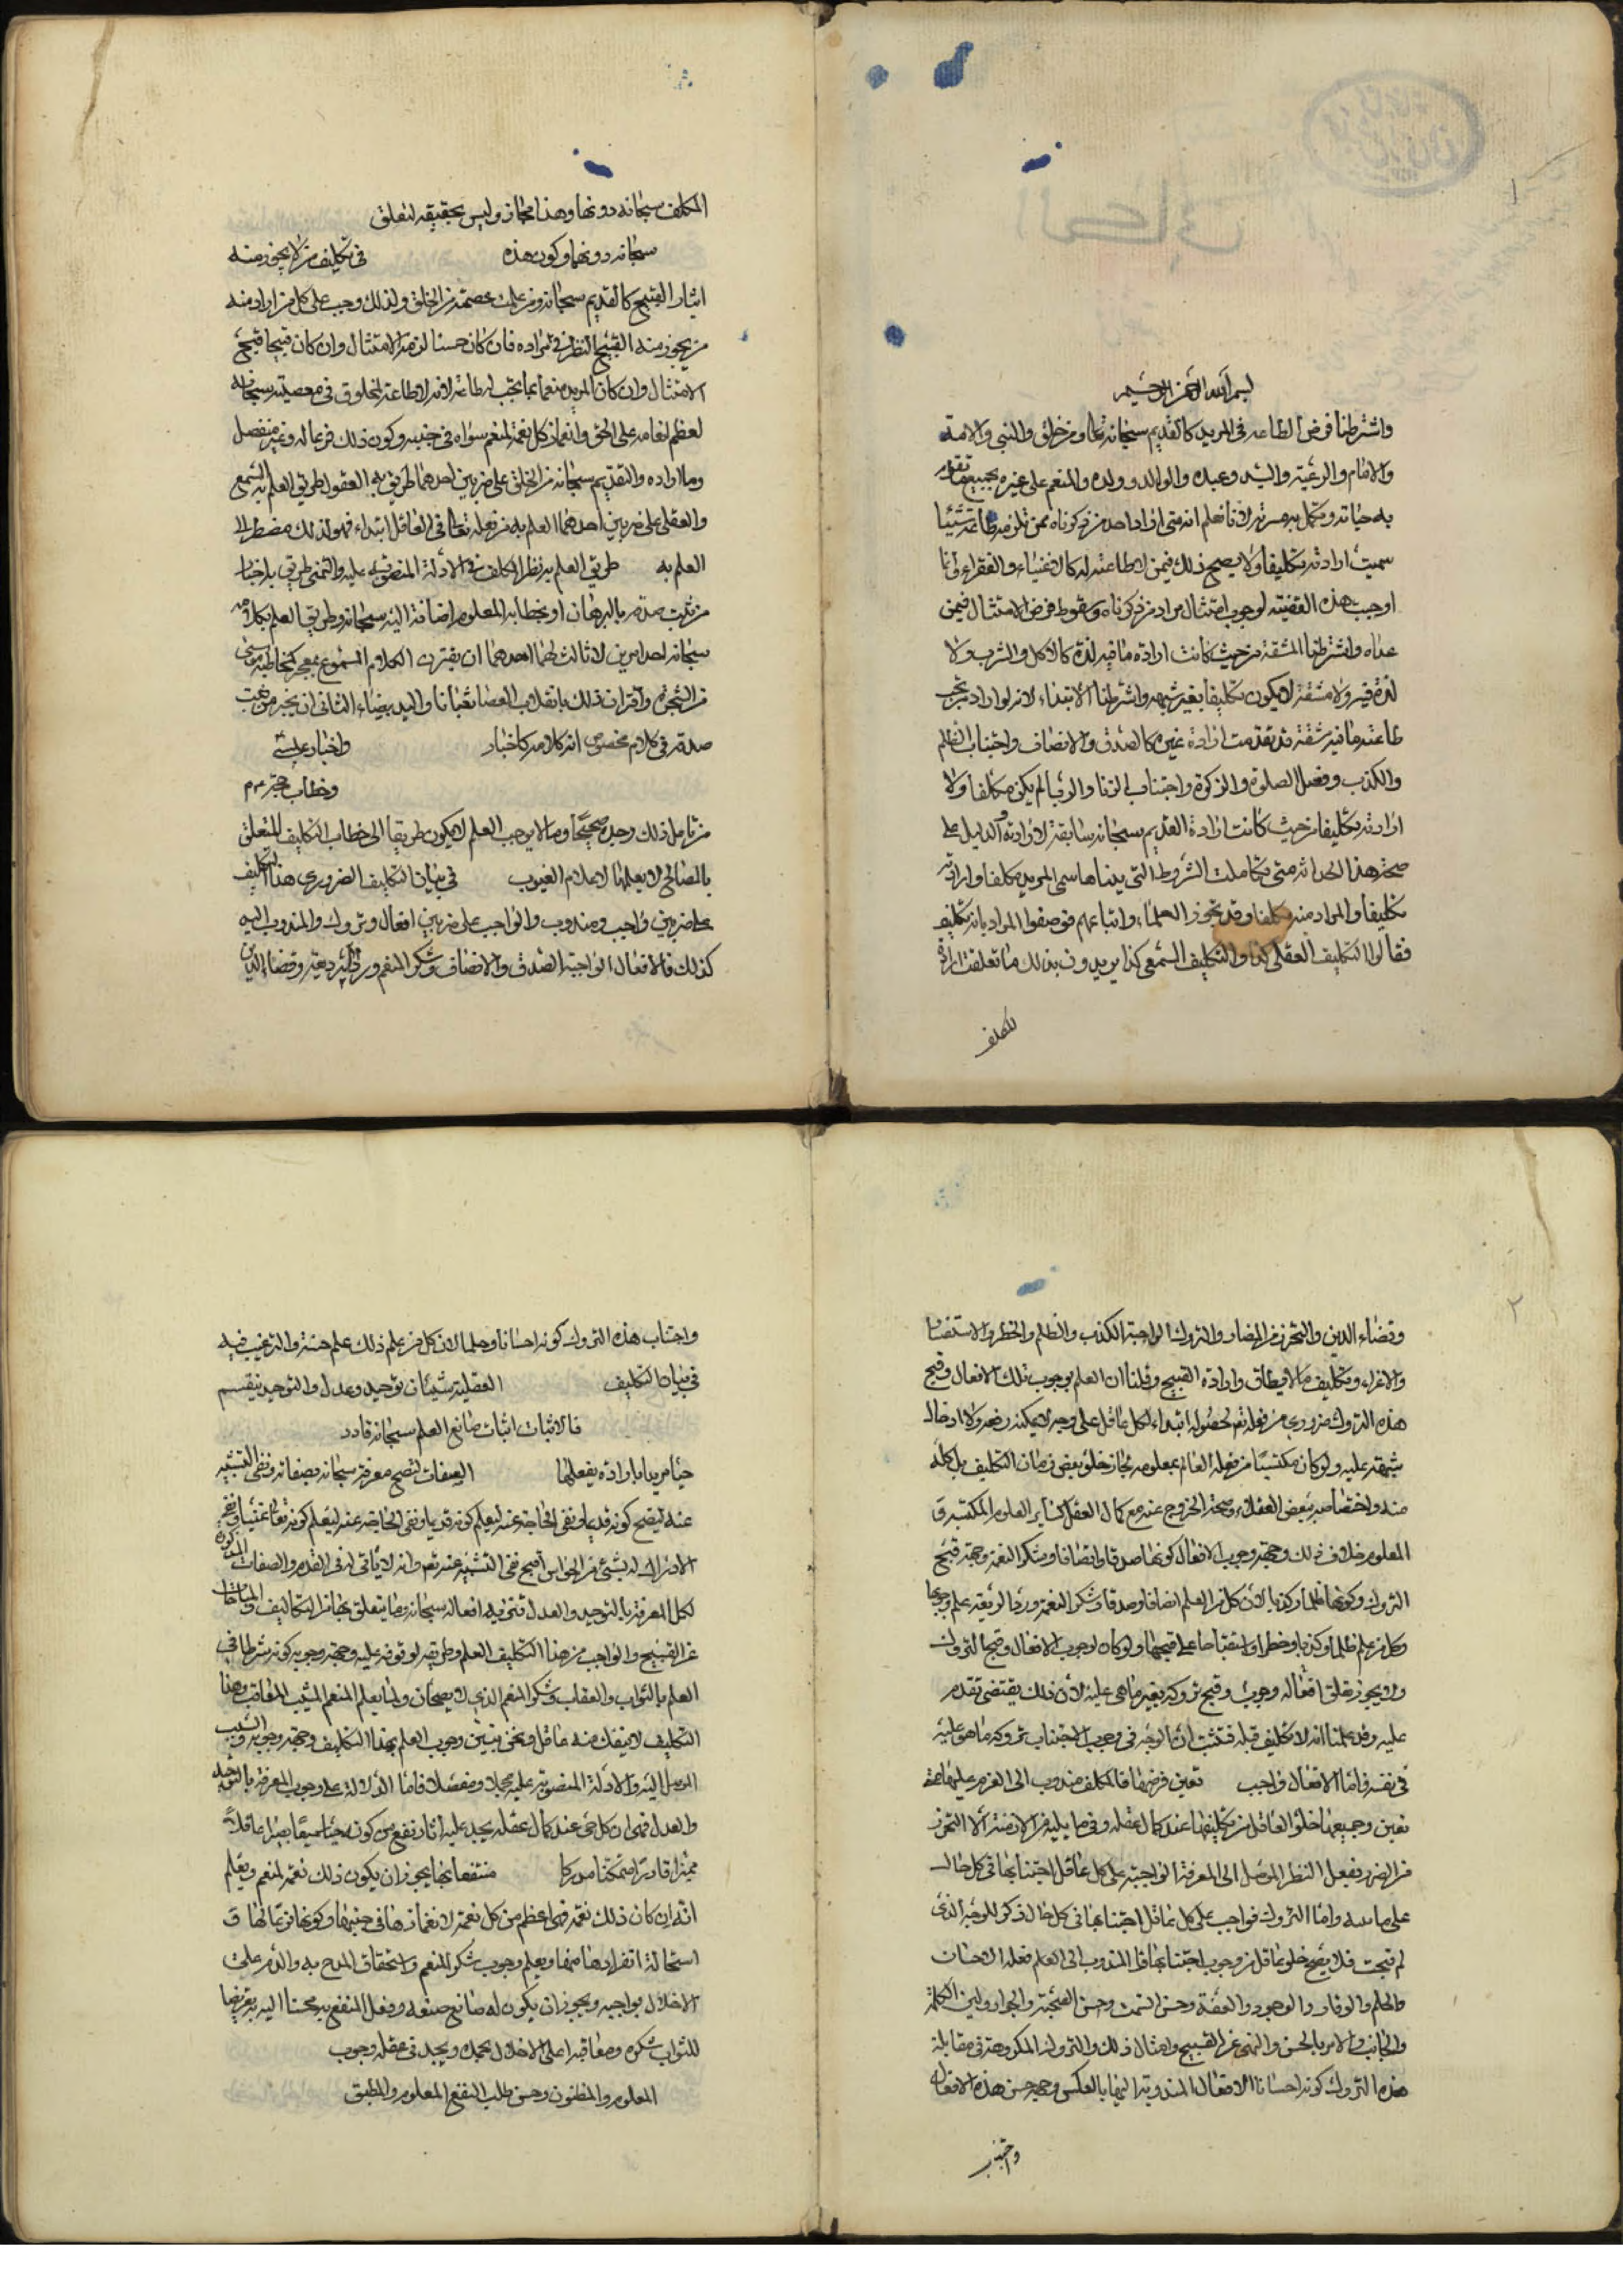 ١
بسم الله الرحمن الرحيم
واشترطنا فرض الطاعه في المريد كالقديم سبحانه تعالى ومن خلق والنبي والامة
والامام والرعية والسيد وعبده والوالد وولده والمنعم على غيره بجميع تقوم
به حياته وتكمل به مسرته لانا نعلم انه متى اراد احد من ذكرناه ممن تلزمه طاعته شيئا
سميت ارادته تكليفا ولا يصح ذلك فيمن لا طاعة له كالاغنياء والفقراء وانا
اوجبت هذه القضيه لوجوب امتثال مراد من ذكرناه وسقوط فرض الامتثال فيمن
عداه واشترطنا المشقة من حيث كانت ارادة ما فيه لذة كالاكل والشرب ولا
لذة فيه ولا مشقة لا يكون تكليفا بغير شبهه واشترطنا الابتداء لانه لو اراد من تجب
طاعته ما فيه مشقة قد تقدمت ارادة غيره كالصدق والانصاف واجتناب الظلم
والكذب وفعل الصلوة والزكوة واجتناب الزنا والربا لم يكن مكلفا ولا
ارادته تكليفا من حيث كانت ارادة القديم سبحانه سابقة لارادته والدليل على
صحة هذا الحد انه متى تكاملت الشروط التي بيناها سمي المريد مكلفا وارادته
تكليفا والمراد منه مكلفا وقد تجوز العلماء واتباعهم فوصفوا المراد بانه تكليف
فقالوا التكليف العقلي كذا والتكليف السمعي كذا يريدون بذلك ما تعلقت ارادة
المكلف
المكلف سبحانه دونها وهذا مجاز وليس بحقيقه لتعلق
سبحانه دونهما وكون هذه في تكليف من لا يجوز منه
ايثار القبيح كالقديم سبحانه ومن علمت عصمته من الخلق ولذلك وجب على كل من اراد منه
من يجوز منه القبيح النظر في مراده فان كان حسنا لزمه الامتثال وان كان قبيحا قبح
الامتثال وان كان المريد منعما بما يجب له طاعته لانه لا طاعة لمخلوق في معصيته سبحانه
لعظم انعامه على الخلق وانغماز كل نعمة لمنعم سواه في جنبه وكون ذلك فرعا له وغير منفصل
وما اراده القديم سبحانه من الخلق على ضربين احدهما طريق به العقول طريق العلم به السمع
والعقلي على ضربين احدهما العلم به من فعله تعالى في العاقل ابتداء فهو لذلك مضطر الى
العلم به طريق العلم به نظر المكلف في الادلة المنصوبه عليه والسمعي طريق به اخبار
من ثبت صدقه بالبرهان او بخطابه المعلوم اضافته اليه سبحانه وطريق العلم بكلامه
سبحانه احد امرين لا ثالث لهما احدهما ان يقترن الكلام المسموع بمعجز كمخاطبته موسى
من الشجرة واقتران ذلك بانقلاب العصا ثعبانا واليد بيضاء الثاني ان يخبر من ثبت
صدقه في كلام مخصوص انه كلامه كاخبار واخبار
وخطاب
من تامل ذلك وجده صحيحا وما لا يوجب العلم لا يكون طريقا الى خطاب التكليف المتعلق
بالمصالح لا يعلمها الا علام الغيوب في بيان التكليف الضروري هذا التكليف
على ضربين واجب ومندوب والواجب على ضربين افعال وتروك والمندوب اليه
كذلك فالافعال الواجبة الصدق والانصاف وشكر المنعم ورد الوديعة وقضاء الدين
٢
وقضاء الدين والتحرز من المضار والتروك الواجبة الكذب والظلم والخطر والاستفساد
والاغراء وتكليف ما لا يطاق وارادة القبيح وقلنا ان العلم بوجوب تلك الافعال وقبح
هذه التروك ضروري من فعله تعالى لحصوله ابتداء لكل عاقل على وجه لا يمكنه رفعه ولا ادخال
شبهة عليه ولو كان مكتسبا من فعله العالم بمعلومه لجاز خلو بعض زمان التكليف بل كله
منه واختصاصه ببعض العقلاء وصحة الخروج عنه مع كمال العقل كسائر العلوم المكتسبه و
المعلوم خلاف ذلك وجهة وجوب الافعال كونها صدقا وانصافا وشكر النعمة وجهة قبح
التروك كونها ظلما وكذبا لان كل من العلم انصافا وصدقا وشكر النعمة ورد الوديعة علم وجوبها
وكل من علم ظلما وكذبا وخطرا واستقباحا علم قبحها ولو كان لوجوب الافعال وقبح التروك
ولا يجوز تعلق افعاله وجوب وقبح تروكه بغير ما هي عليه لان ذلك يقتضي تقدم
عليه وقد علمنا انه لا تكليف قبله فثبت ان الوجه في وجوب اجتناب تروكه ما هو عليه
في نفسه فاما الافعال فواجب تعين فرضها فالمكلف مندوب الى العزم عليها فاذا
تعين وجميعها خلو العاقل من تكليفها عند كمال عقله وفي ما يليه من الازمنة الا التحرز
من الضرر بفعل النظر الموصل الى المعرفة الواجبة على كل عاقل اجتنابها في كل حال
على ما واما التروك فواجب على كل عاقل اجتنابها في كل حال ذكر للوجه الذي
له قبحت فلا يصح خلو عاقل من وجوب اجتنابها فاما المندوب الى العلم فعله الاحسان
والحلم والوقار والوجود والعفة وحسن السمت وحسن الصحبة والجوار ولين الكلمة
والجانب والامر بالحسن والنهي عن القبيح وامثال ذلك والتروك المكروهة في مقابلة
هذه التروك كونه احسانا الافعال المندوبة اليها بالعكس وجهة حسن هذه الافعال
واجتنب
واجتناب هذه التروك كونه احسانا وحلما لان كل من علم ذلك علم حسنه والترغيب فيه
في بيان التكليف العقلية شيئان توحيد وعدل والتوحيد ينقسم
فالاثبات اثبات صانع العلم سبحانه قادر
حيا مريدا بارادة يفعلها الصفات لتصح معرفته سبحانه بصفاته ونفي التشبيه
عنه ليصح كونه قديما ونفي الحاجة عنه ليعلم كونه قديما ونفي الحاجة عنه ليعلم كونه تعالى غنيا ونفي
الادراك له بشيء من الحواس ليصح نفي التشبيه عنه تعالى وانه لا ثاني له في القدم والصفات المذكورة
لكمال المعرفة بالتوحيد والعدل تنزيه افعاله سبحانه وما يتعلق بها من التكاليف والمباحات
عن القبيح والواجب من هذا التكليف العلم وطريقه لوقوفه عليه وجهة وجوبه كونه شرطا في
العلم بالثواب والعقاب وشكر المنعم الذي لا يصحان ولما يعلم المنعم المثيب المعاقب وهذا
التكليف لا ينفك منه عاقل ونحن نبين وجوب العلم بهذا التكليف وجهة وجوبه والسبب
الموصل اليه والادلة المنصوبة عليه مجملا ومفصلا فاما الدلالة على وجوب المعرفة بالتوحيد
والعدل فهي ان كل حي عند كمال عقله يجد عليه آثار نفع من كونه حيا سميعا بصيرا عاقلا
مميزا قادرا متمكنا مدركا منتفعا بها يجوز ان يكون ذلك نعمة لمنعم ويعلم
انه ان كان ذلك نعمة فهي اعظم من كل نعمة لانغمازها في جنبها وكونها فرعا لها و
استحالة انفرادها منها ويعلم وجوب شكر المنعم واستحقاق المدح به والذم على
الاخلال بواجبه ويجوز ان يكون له صانع صنعه وفعل المنفع به محسنا اليه يعرضها
للثواب بشكره ومعاقبه على الاخلال بحمده ويجد في عقله وجوب
المعلوم والمظنون وحسن طلب النفع المعلوم والمطبق